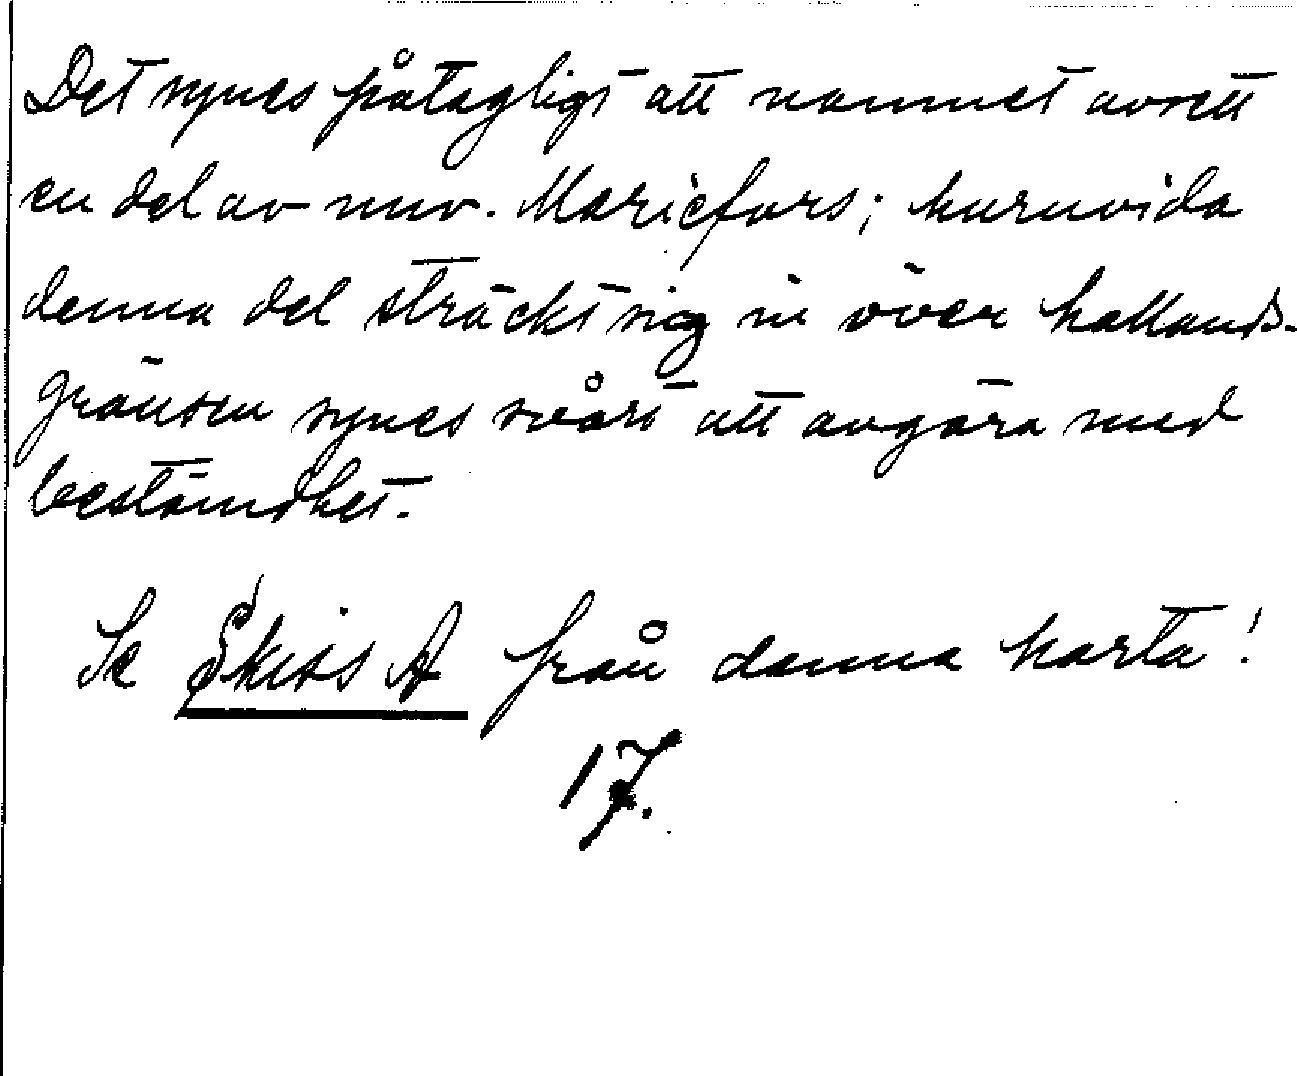 Det synes påtagligt att namnet avsett
en del av nuv. Mariefors; huruvida
denna del sträckt sig in över hallands-
gränsen synes svårt att avgöra med
bestämdhet.
Se Skiss A från denna karta!
17.